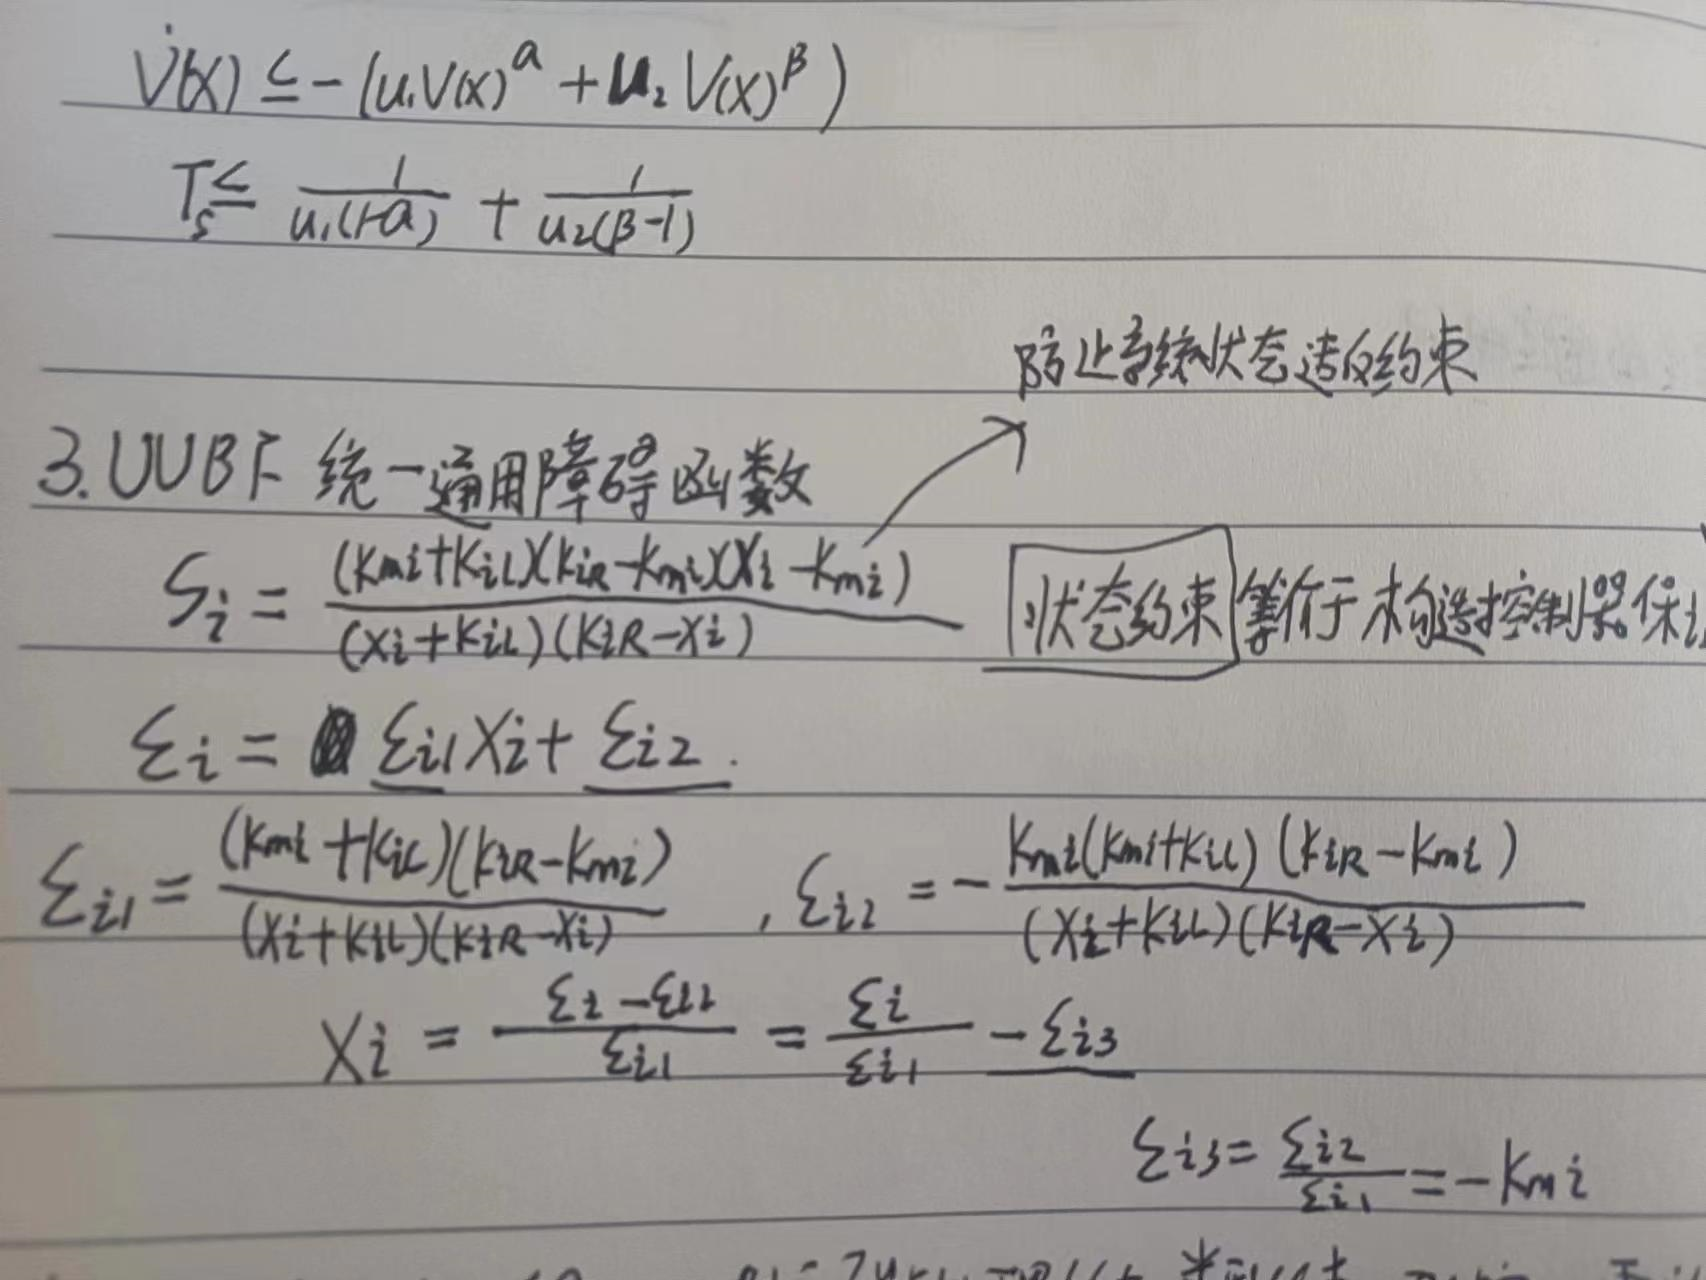 V̇(x) ≤ -(u₁V(x)^α + u₂V(x)^β)
Ts ≤ 1/(u₁(1-α)) + 1/(u₂(β-1))
防止系统状态违反约束
3.UUBF 统一通用障碍函数
Si = (kmi+kiL)(kiR-kmi)(xi-kmi) / (xi+kiL)(kiR-xi)
状态约束 等价于 构造控制器保
ξi = ξi1xi + ξi2.
ξi1 = (kmi+kiL)(kiR-kmi) / (xi+kiL)(kiR-xi) , ξi2 = - kmi(kmi+kiL)(kiR-kmi) / (xi+kiL)(kiR-xi)
xi = (ξi-ξi2)/ξi1 = ξi/ξi1 - ξi3
ξi3 = ξi2/ξi1 = -kmi